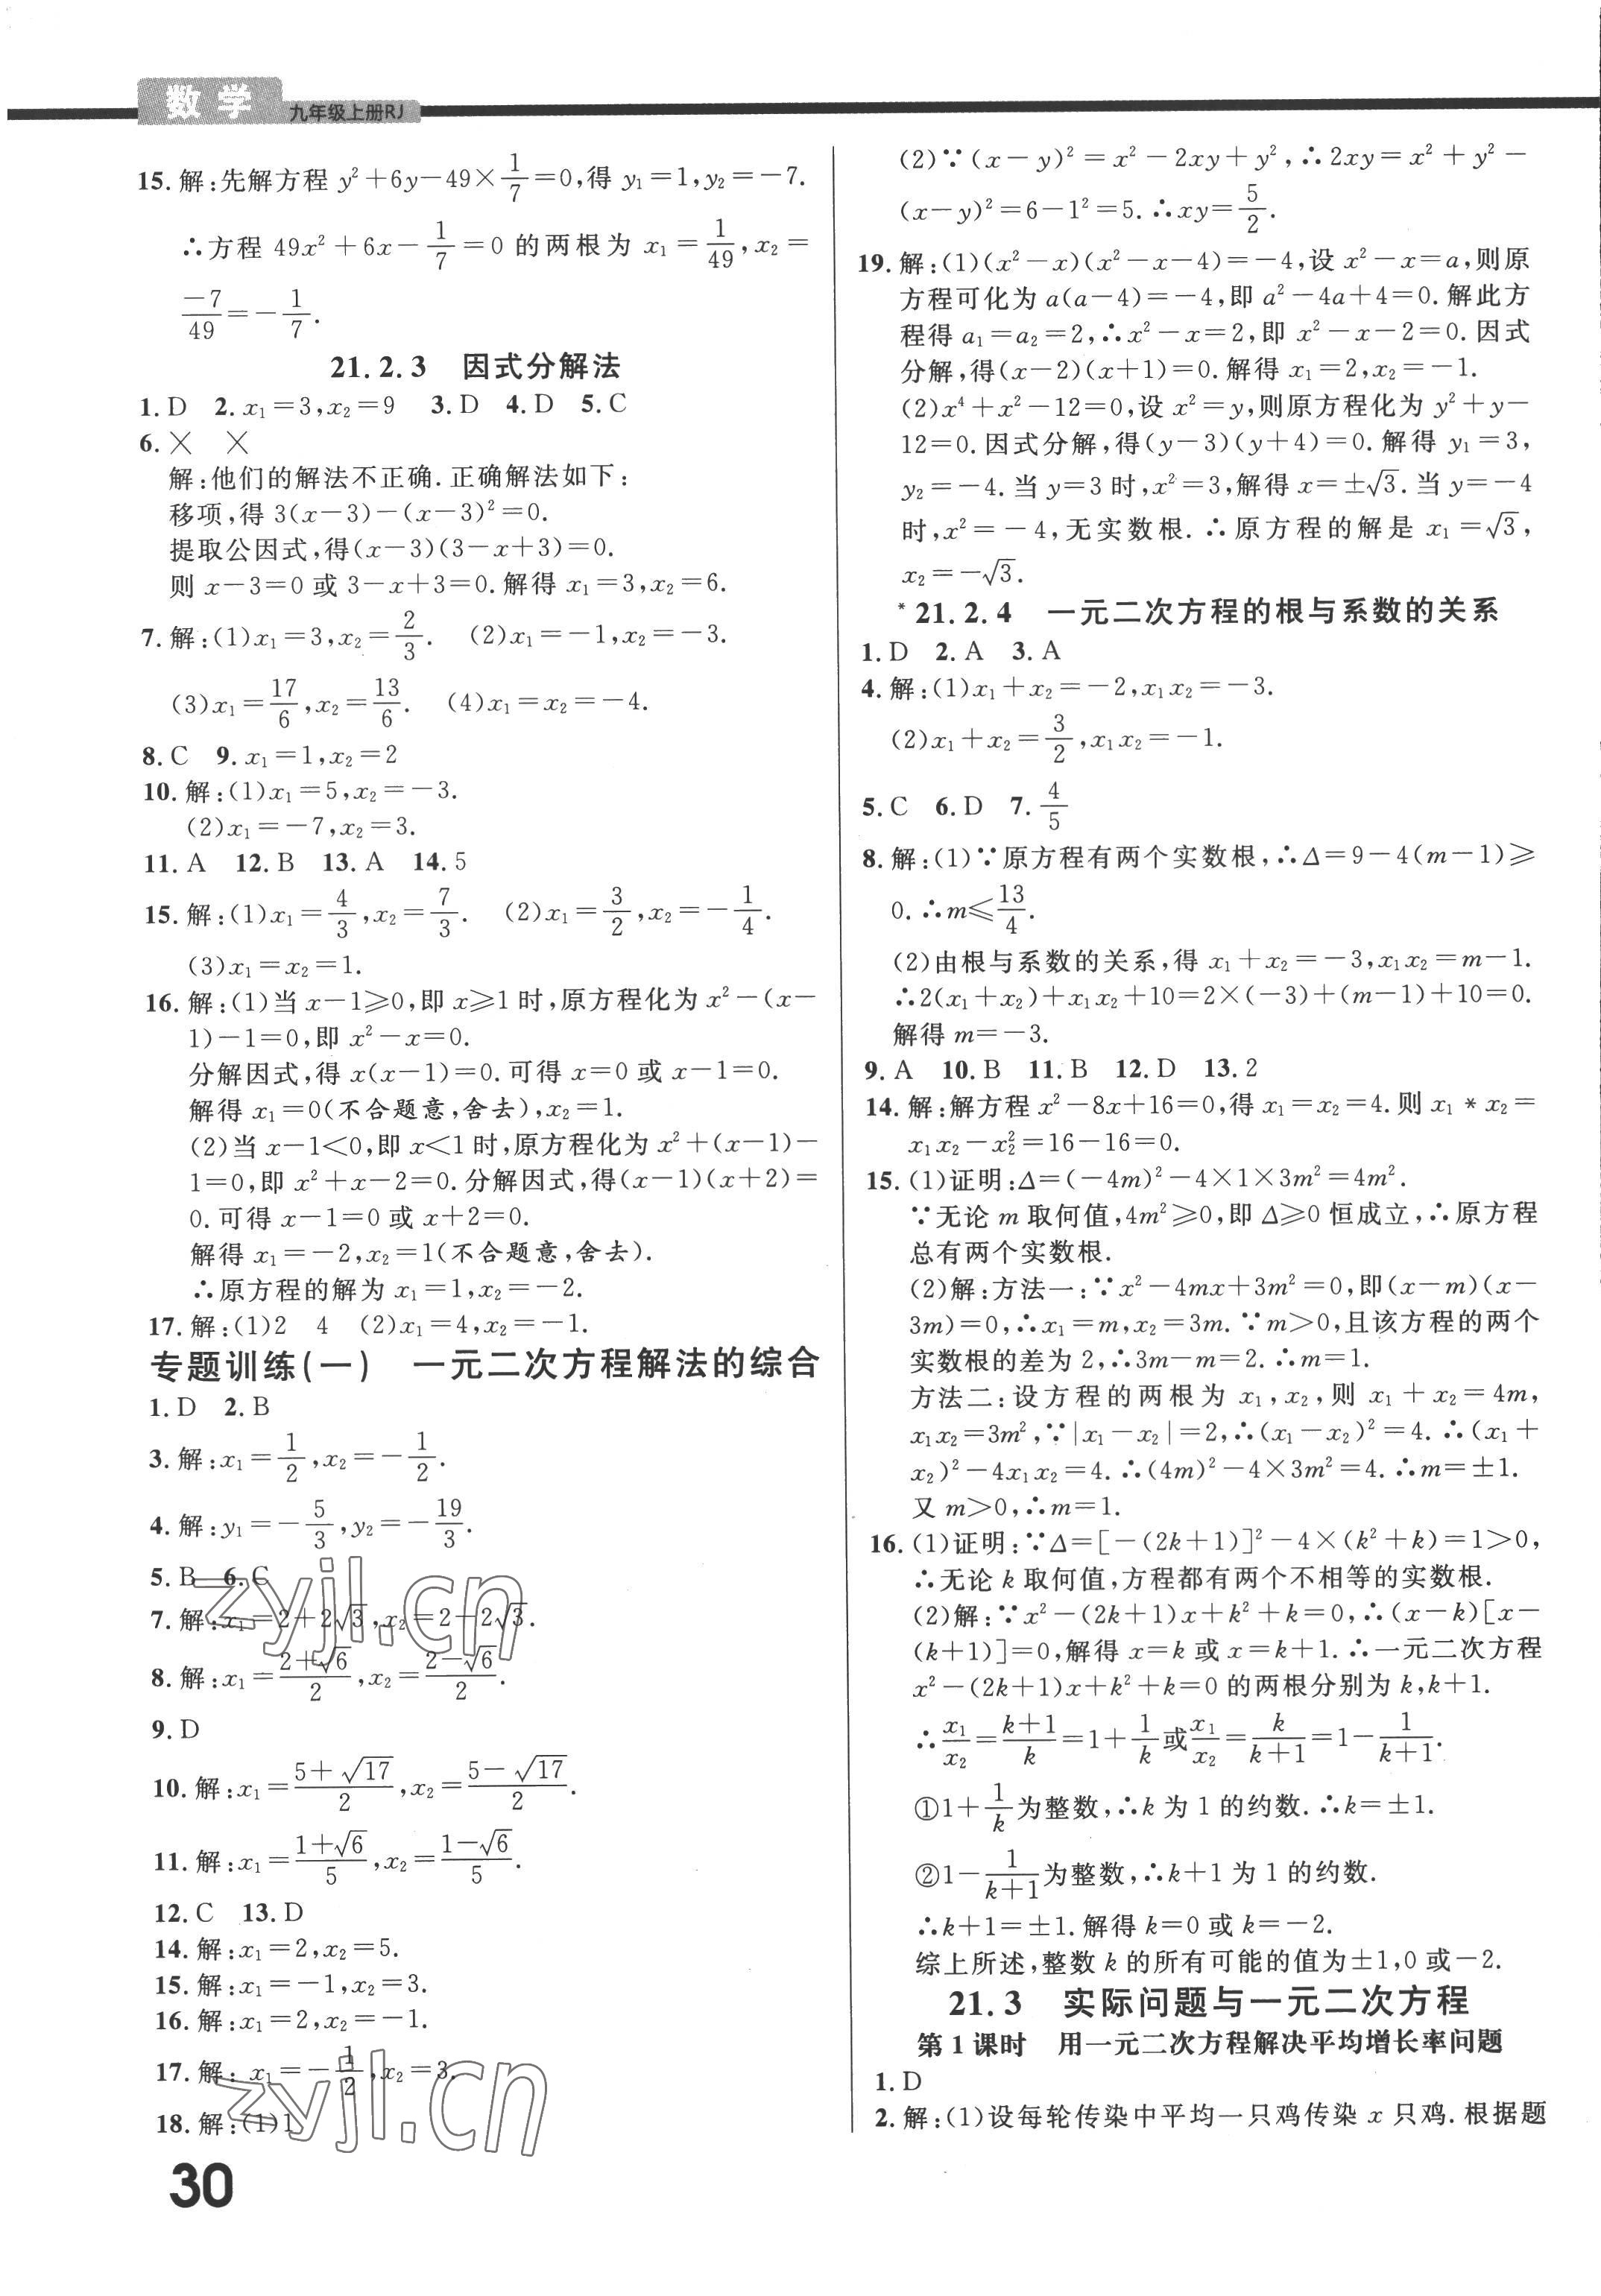 数学
九年级上册RJ
15.解:先解方程 y²+6y-49×1/7=0,得 y₁=1,y₂=-7.
∴方程 49x²+6x-1/7=0 的两根为 x₁=1/49,x₂=
-7/49=-1/7.
21.2.3 因式分解法
1.D 2.x₁=3,x₂=9 3.D 4.D 5.C
6.╳ ╳
解:他们的解法不正确.正确解法如下:
移项,得 3(x-3)-(x-3)²=0.
提取公因式,得(x-3)(3-x+3)=0.
则 x-3=0 或 3-x+3=0.解得 x₁=3,x₂=6.
7.解:(1)x₁=3,x₂=2/3. (2)x₁=-1,x₂=-3.
(3)x₁=17/6,x₂=13/6. (4)x₁=x₂=-4.
8.C 9.x₁=1,x₂=2
10.解:(1)x₁=5,x₂=-3.
(2)x₁=-7,x₂=3.
11.A 12.B 13.A 14.5
15.解:(1)x₁=4/3,x₂=7/3. (2)x₁=3/2,x₂=-1/4.
(3)x₁=x₂=1.
16.解:(1)当 x-1≥0,即 x≥1 时,原方程化为 x²-(x-
1)-1=0,即 x²-x=0.
分解因式,得 x(x-1)=0.可得 x=0 或 x-1=0.
解得 x₁=0(不合题意,舍去),x₂=1.
(2)当 x-1<0,即 x<1 时,原方程化为 x²+(x-1)-
1=0,即 x²+x-2=0.分解因式,得(x-1)(x+2)=
0.可得 x-1=0 或 x+2=0.
解得 x₁=-2,x₂=1(不合题意,舍去).
∴原方程的解为 x₁=1,x₂=-2.
17.解:(1)2 4 (2)x₁=4,x₂=-1.
专题训练(一) 一元二次方程解法的综合
1.D 2.B
3.解:x₁=1/2,x₂=-1/2.
4.解:y₁=-5/3,y₂=-19/3.
5.B 6.C
7.解:x₁=2+2√3,x₂=2-2√3.
8.解:x₁=(2+√6)/2,x₂=(2-√6)/2.
9.D
10.解:x₁=(5+√17)/2,x₂=(5-√17)/2.
11.解:x₁=(1+√6)/5,x₂=(1-√6)/5.
12.C 13.D
14.解:x₁=2,x₂=5.
15.解:x₁=-1,x₂=3.
16.解:x₁=2,x₂=-1.
17.解:x₁=-1/2,x₂=3.
18.解:(1)1
zyjl.cn
zyjl.cn
30
(2)∵(x-y)²=x²-2xy+y²,∴2xy=x²+y²-
(x-y)²=6-1²=5.∴xy=5/2.
19.解:(1)(x²-x)(x²-x-4)=-4,设 x²-x=a,则原
方程可化为 a(a-4)=-4,即 a²-4a+4=0.解此方
程得 a₁=a₂=2,∴x²-x=2,即 x²-x-2=0.因式
分解,得(x-2)(x+1)=0.解得 x₁=2,x₂=-1.
(2)x⁴+x²-12=0,设 x²=y,则原方程化为 y²+y-
12=0.因式分解,得(y-3)(y+4)=0.解得 y₁=3,
y₂=-4.当 y=3 时,x²=3,解得 x=±√3.当 y=-4
时,x²=-4,无实数根.∴原方程的解是 x₁=√3,
x₂=-√3.
*21.2.4 一元二次方程的根与系数的关系
1.D 2.A 3.A
4.解:(1)x₁+x₂=-2,x₁x₂=-3.
(2)x₁+x₂=3/2,x₁x₂=-1.
5.C 6.D 7.4/5
8.解:(1)∵原方程有两个实数根,∴Δ=9-4(m-1)≥
0.∴m≤13/4.
(2)由根与系数的关系,得 x₁+x₂=-3,x₁x₂=m-1.
∴2(x₁+x₂)+x₁x₂+10=2×(-3)+(m-1)+10=0.
解得 m=-3.
9.A 10.B 11.B 12.D 13.2
14.解:解方程 x²-8x+16=0,得 x₁=x₂=4.则 x₁*x₂=
x₁x₂-x₂²=16-16=0.
15.(1)证明:Δ=(-4m)²-4×1×3m²=4m².
∵无论 m 取何值,4m²≥0,即 Δ≥0 恒成立,∴原方程
总有两个实数根.
(2)解:方法一:∵x²-4mx+3m²=0,即(x-m)(x-
3m)=0,∴x₁=m,x₂=3m.∵m>0,且该方程的两个
实数根的差为 2,∴3m-m=2.∴m=1.
方法二:设方程的两根为 x₁,x₂,则 x₁+x₂=4m,
x₁x₂=3m²,∵|x₁-x₂|=2,∴(x₁-x₂)²=4.∴(x₁+
x₂)²-4x₁x₂=4.∴(4m)²-4×3m²=4.∴m=±1.
又 m>0,∴m=1.
16.(1)证明:∵Δ=[-(2k+1)]²-4×(k²+k)=1>0,
∴无论 k 取何值,方程都有两个不相等的实数根.
(2)解:∵x²-(2k+1)x+k²+k=0,∴(x-k)[x-
(k+1)]=0,解得 x=k 或 x=k+1.∴一元二次方程
x²-(2k+1)x+k²+k=0 的两根分别为 k,k+1.
∴x₁/x₂=(k+1)/k=1+1/k或x₁/x₂=k/(k+1)=1-1/(k+1).
①1+1/k为整数,∴k 为 1 的约数.∴k=±1.
②1-1/(k+1)为整数,∴k+1 为 1 的约数.
∴k+1=±1.解得 k=0 或 k=-2.
综上所述,整数 k 的所有可能的值为±1,0 或-2.
21.3 实际问题与一元二次方程
第1课时 用一元二次方程解决平均增长率问题
1.D
2.解:(1)设每轮传染中平均一只鸡传染 x 只鸡.根据题